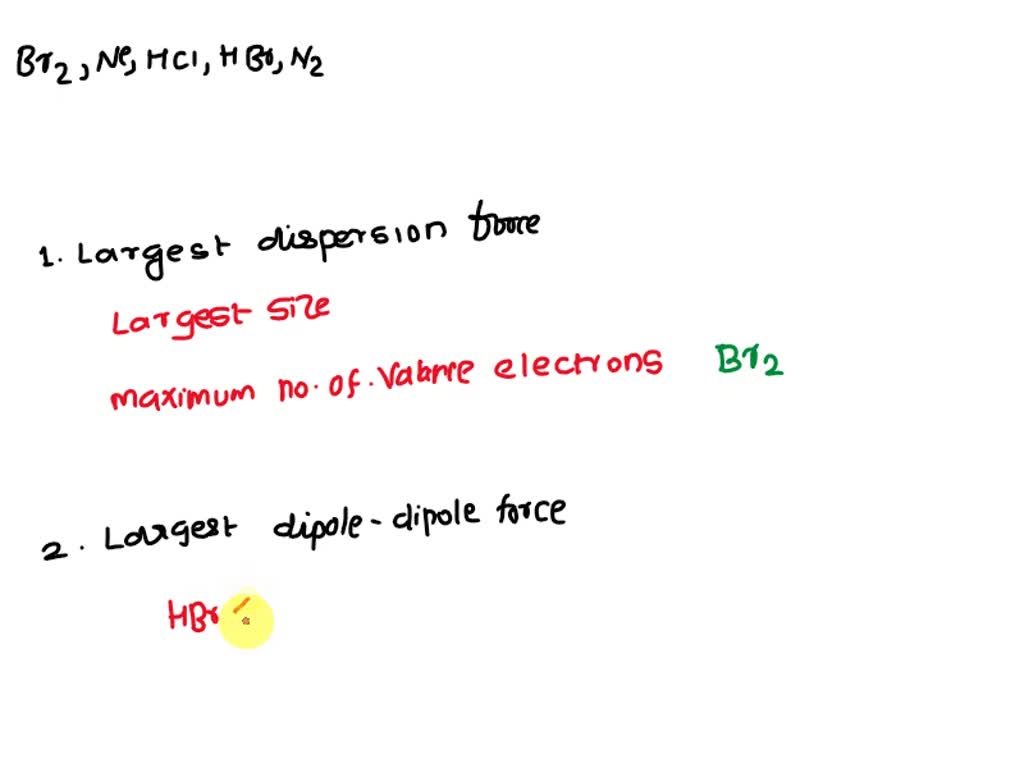 Br2, Ne, HCl, HBr, N2
1. Largest dispersion force
Largest size
maximum no. of. Valence electrons Br2
2. Largest dipole - dipole force
HBr <